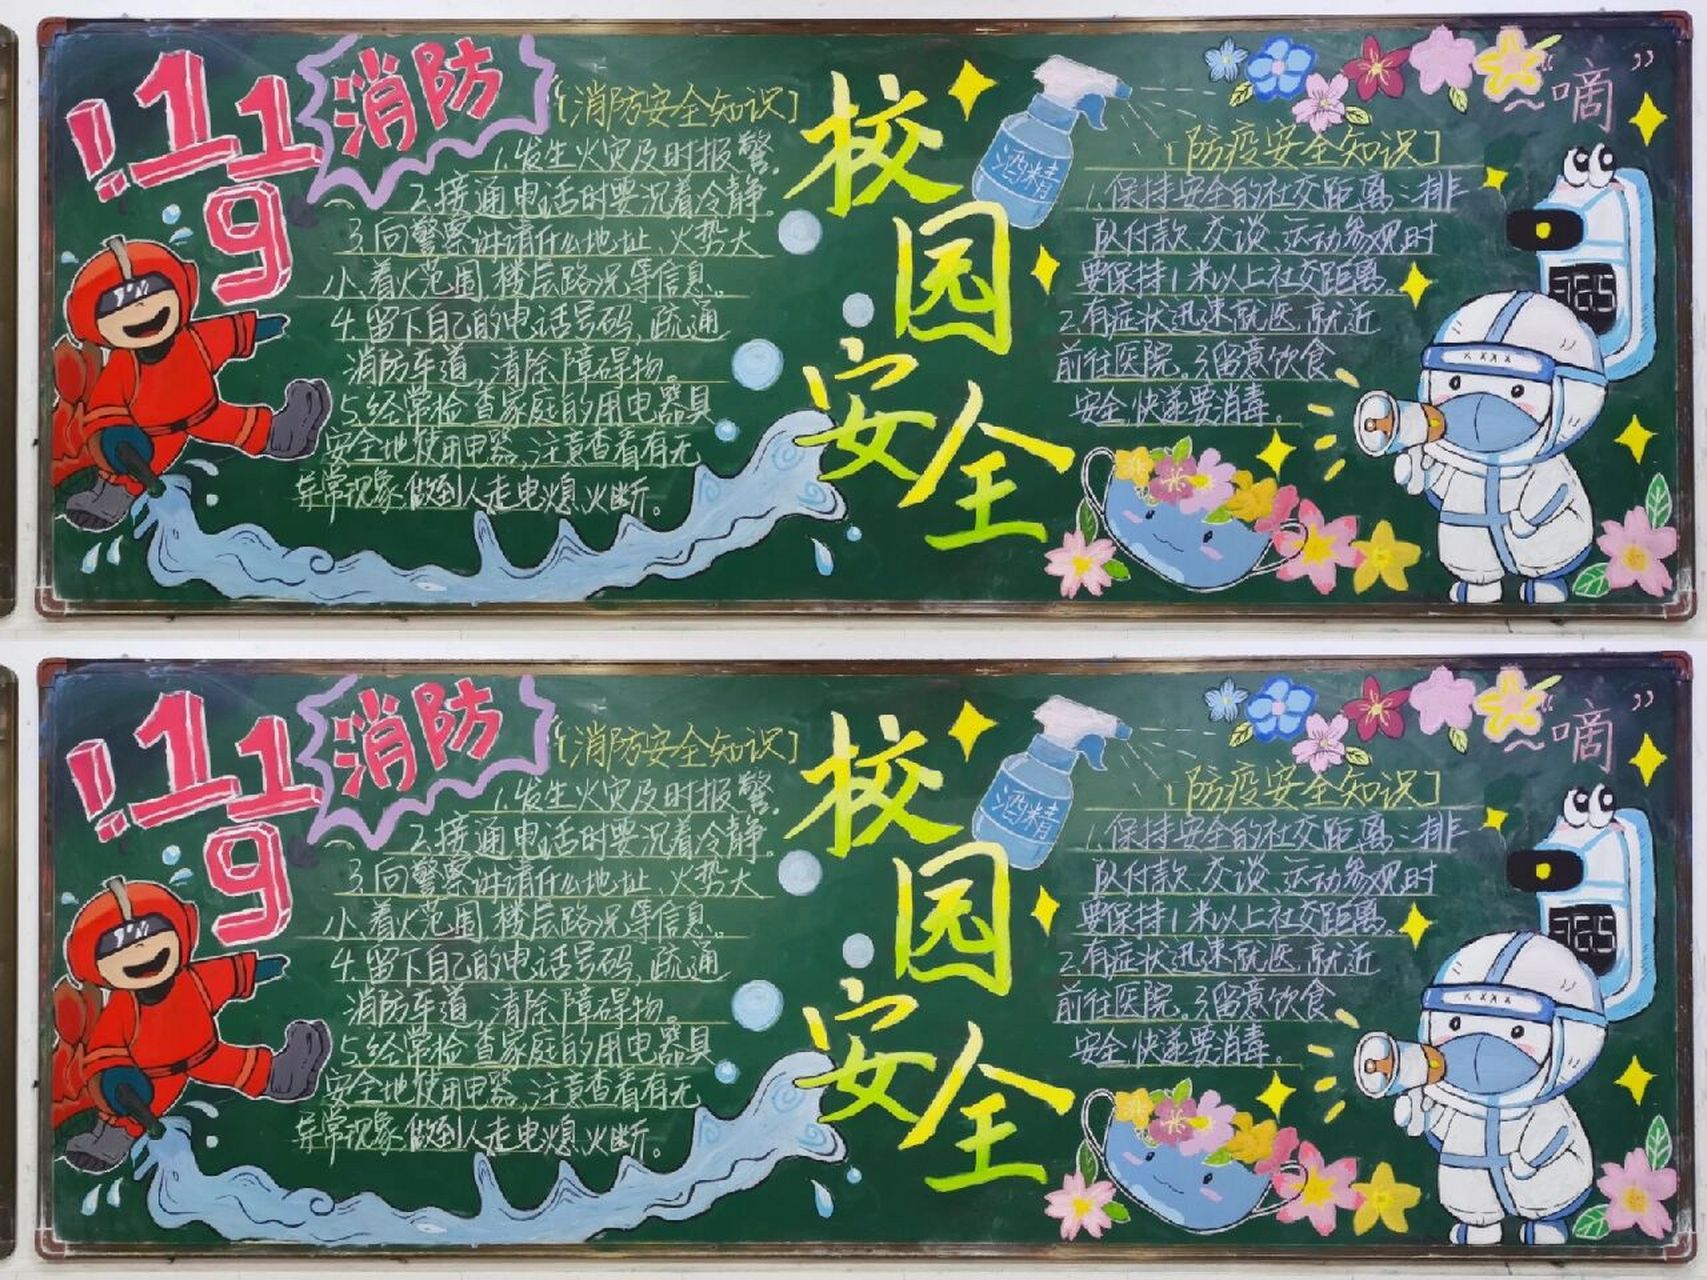 !119
消防
[消防安全知识]
1.发生火灾及时报警。
2.接通电话时要沉着冷静。
3.向警察讲清什么地址、火势大
小、着火范围,楼层路况等信息。
4.留下自己的电话号码,疏通
消防车道,清除障碍物。
5.经常检查家庭的用电器具
安全地使用电器,注意查看有无
异常现象,做到人走电熄,火断。
校园安全
酒精
[防疫安全知识]
1.保持安全的社交距离:排
队付款、交谈、运动参观时
要保持1米以上社交距离。
2.有症状迅速就医,就近
前往医院。3.留意饮食
安全,快递要消毒。
~嘀”
36.5
!119
消防
[消防安全知识]
1.发生火灾及时报警。
2.接通电话时要沉着冷静。
3.向警察讲清什么地址、火势大
小、着火范围,楼层路况等信息。
4.留下自己的电话号码,疏通
消防车道,清除障碍物。
5.经常检查家庭的用电器具
安全地使用电器,注意查看有无
异常现象,做到人走电熄,火断。
校园安全
酒精
[防疫安全知识]
1.保持安全的社交距离:排
队付款、交谈、运动参观时
要保持1米以上社交距离。
2.有症状迅速就医,就近
前往医院。3.留意饮食
安全,快递要消毒。
~嘀”
36.5